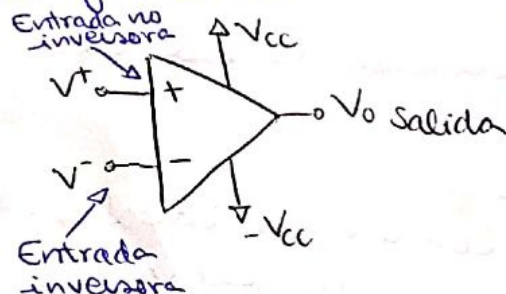 Entrada no
inversora
Vcc
V+
+
Vo Salida
V-
-
-Vcc
Entrada
inversora